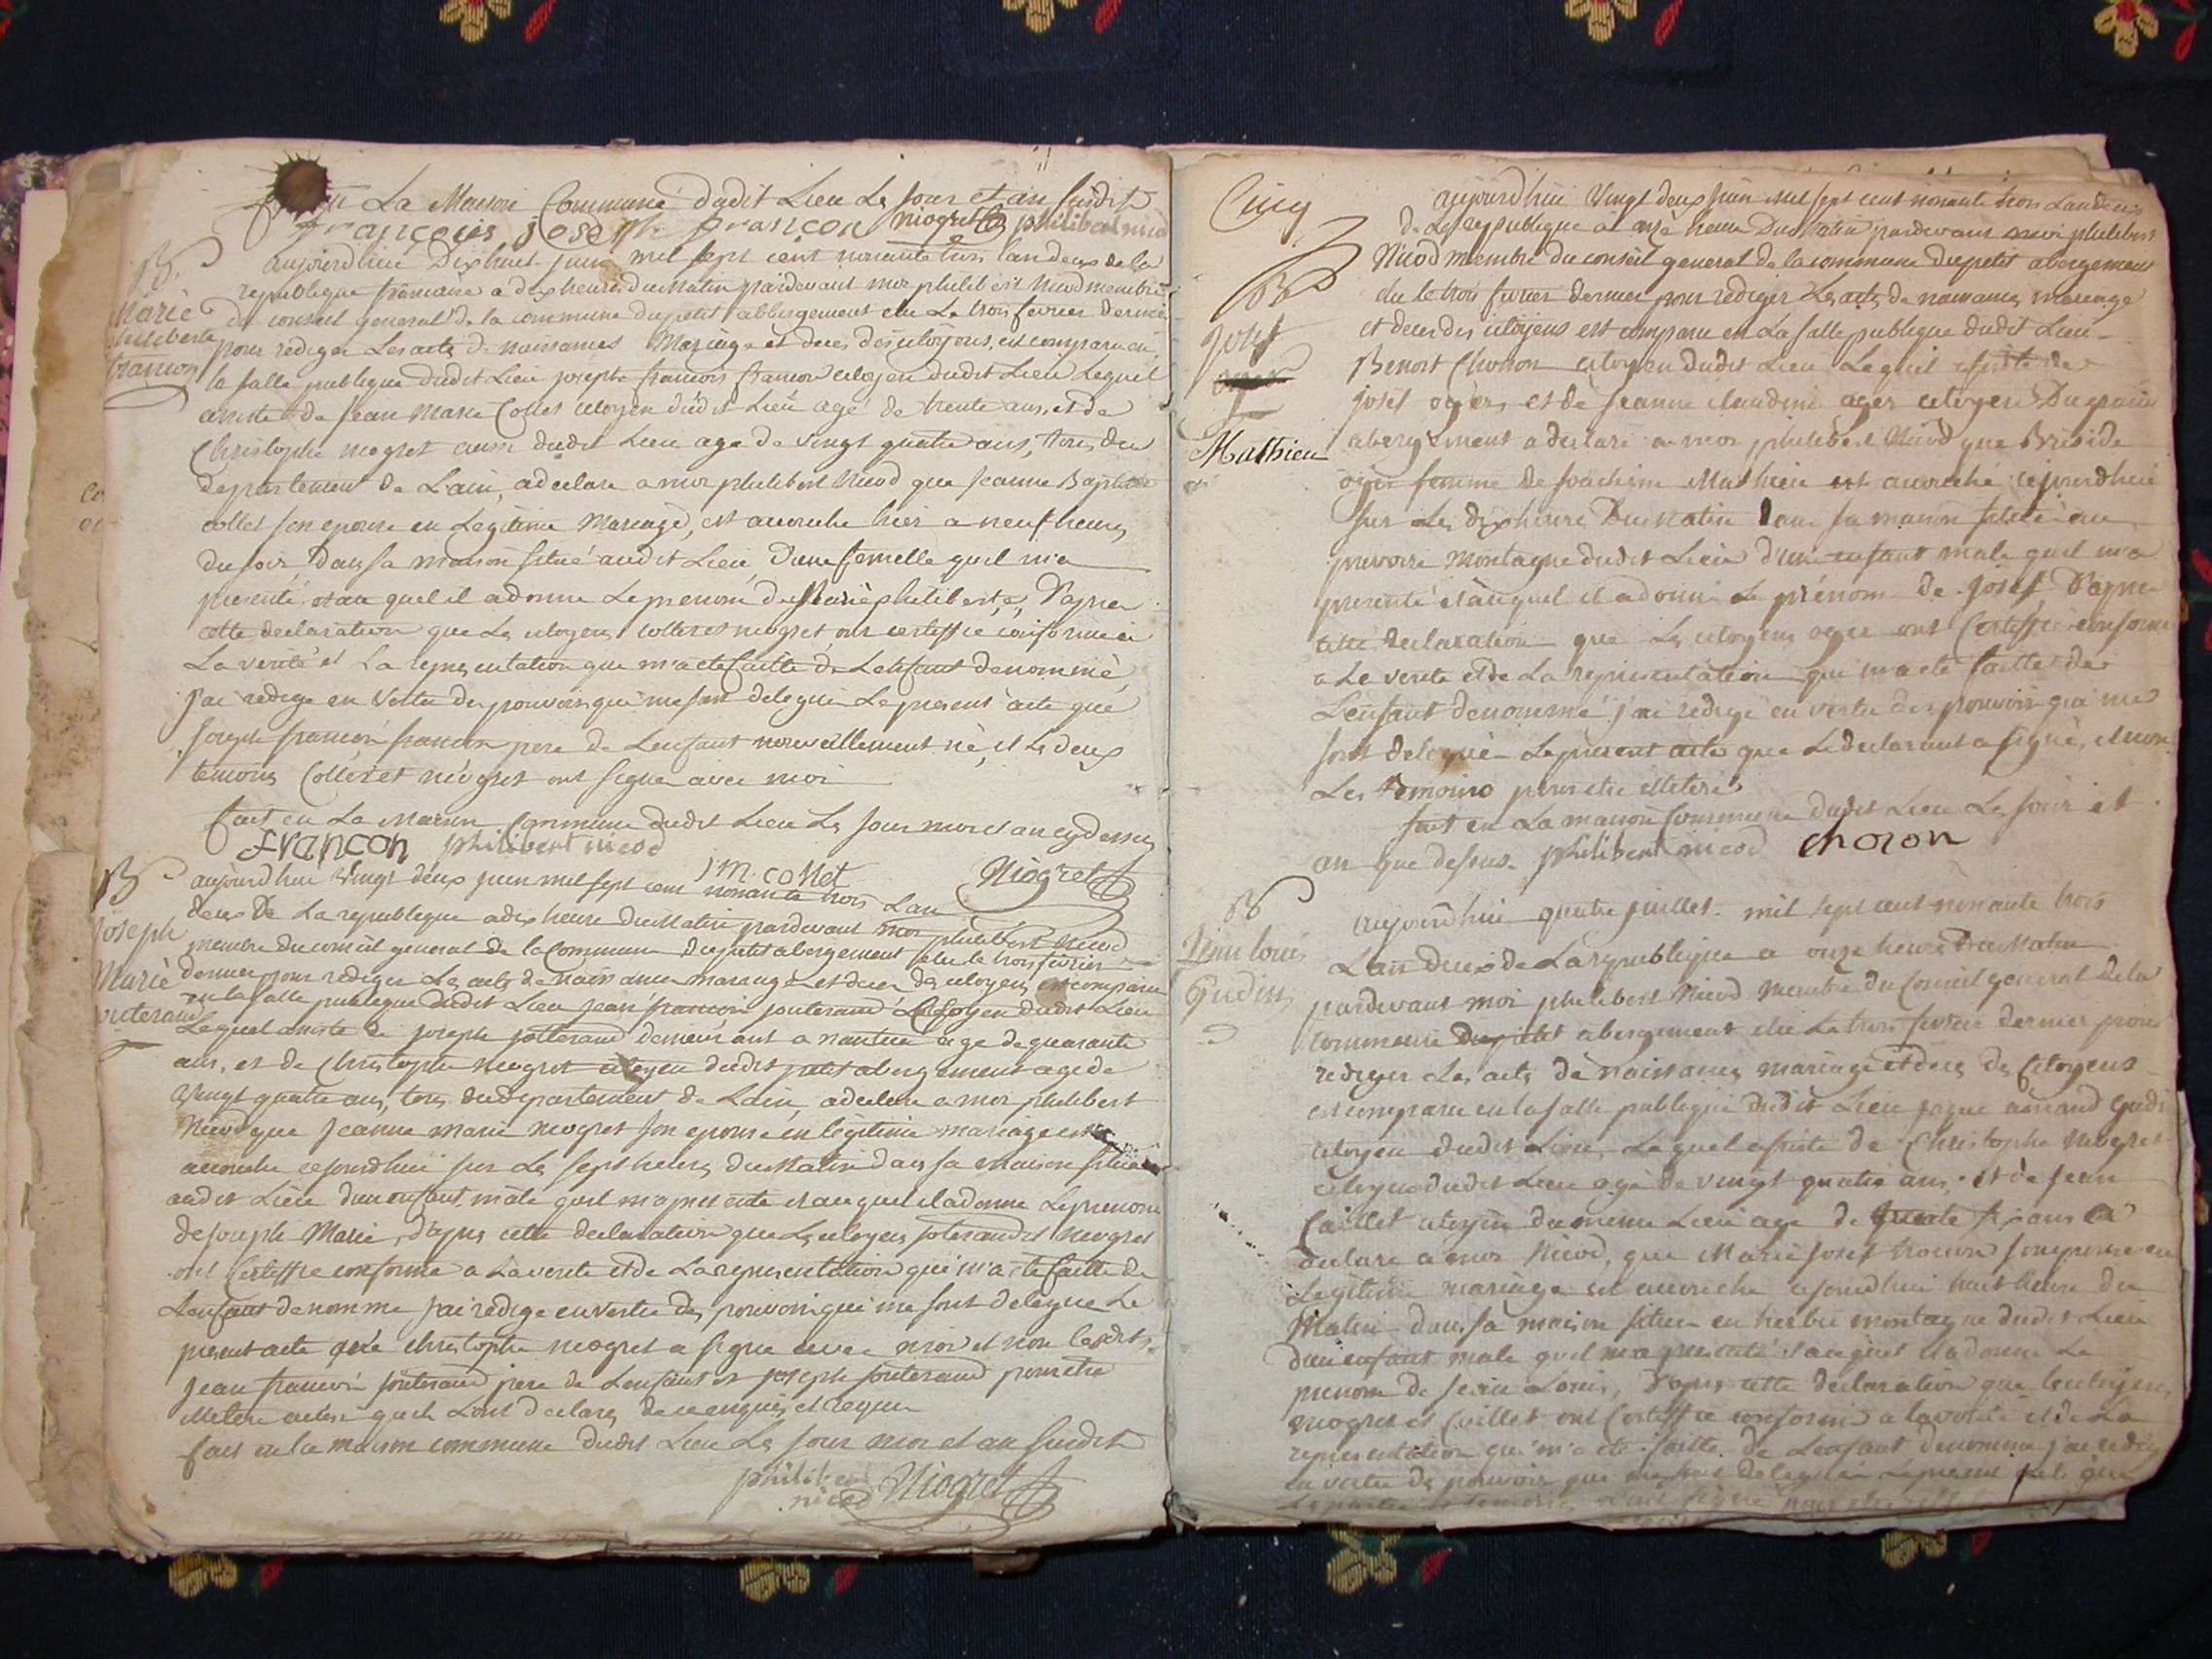 La Maison Commune dudit Lieu Les jour et an susdit
françois joseph françon Niogret philibert nicod
B
Marie
philiberte
francon
aujourdhuit Dixhuit juin mil sept cent nonante trois lan deux de la
republique francaise a dix heures du matin pardevant moi philibert Nicod membre
du conseil general de la commune du petit abbergement elu Le trois fevrier dernier
pour rediger Les acts de naissances Mariage et deces des citoyens, est comparu en
la salle publique dudit Lieu joseph francois francon citoyen dudit Lieu Lequel
assiste de Jean Marie Collet citoyen dudit Lieu agé de trente ans, et de
Christophe niogret aussi dudit Lieu age de vingt quatre ans, tous du
departement de Lain, a declare a moi philibert Nicod que jeanne Baptiste
collet son epouse en Legitime Mariage, est accouche hier a neuf heures
du soir dans sa maison situé audit Lieu, dune femelle quil ma
presenté et au quel il a donne Le prenom de Marie philiberte, Dapres
cette declaration que Les citoyens collet et niogret ont certiffie conforme a
La verité et La representation que m'a ete faitte de Lenfant denommé,
j'ai redige en Vertu des pouvoirs qui me sont delegués Le present acte que
joseph francois francon pere de Lenfant nouvellement né, et Les deux
temoins Collet et niogret ont signe avec moi
fait en La Maison Commune dudit Lieu Les jour mois et an cy dessus
francon philibert nicod
J M collet Niogret
B
joseph
Marie
aujourdhui Vingt deux juin mil sept cent nonante trois Lan
deux De La republique a dix heure du Matin pardevant moi philibert Nicod
membre du conseil general de la commune du petit abergement elu le trois fevrier
dernier pour rediger Les acts de naissances mariage et deces des citoyens est comparu
en la salle publique dudit Lieu jean francois Citoyen dudit Lieu
Lequel assiste de joseph demeurant a nantua age de quarante
ans, et de Christophe niogret citoyen dudit petit abergement age de
vingt quatre ans, tous du departement de Lain, a declare a moi philibert
Nicod que jeanne marie niogret son epouse en legitime mariage est
accouche cejourdhui sur Les sept heures du Matin dans sa maison situé
audit Lieu dun enfant mâle quil m'a presente et au quel il a donne Le prenom
de joseph Marie, dapres cette declaration que Les citoyens et niogret
ont Certiffie conforme a La verite et de La representation qui m'a ete faitte de
Lenfant denomme j'ai redige en vertu des pouvoirs qui me sont delegue Le
present acte que christophe niogret a signe avec moi et non lesdits
jean francois pere de Lenfant et joseph pour etre
illetere
fait en la maison commune dudit Lieu Les jour mois et an susdit
philibert
nicod Niogret
Cinq
B
josef
Mathieu
aujourdhui Vingt deux juin mil sept cent nonante trois Lan deux
de La republique a onze heure du Matin pardevant moi philibert
Nicod membre du conseil general de la commune du petit abergement
elu le trois fevrier dernier pour rediger Les acts de naissances mariage
et deces des citoyens est comparu en La salle publique dudit Lieu
Benoit Choron citoyen dudit Lieu Lequel assiste de
josef oger, et de jeanne claudine oger citoyens Du petit
abergement a declaré a moi philibert Nicod que Briside
oger femme de joachim Mathieu est accouché cejourdhui
sur Les dix heures Du Matin dans sa maison située au
montagne dudit Lieu d'un enfant male quil m'a
presenté et auquel il a donné Le prénom de josef D'apres
cette declaration que Les citoyens oger ont Certiffié conforme
a La verité et de La representation qui m'a eté faitte de
L'enfant denommé j'ai redigé en vertu des pouvoirs qui me
sont delegué Le present acte que Le declarant a signé, et non
Les temoins pour etre illeteré
fait en La maison Commune dudit Lieu Les jour et
an que dessus philibert nicod choron
B
jean louis
Gudin
Aujourdhui quatre juillet mil sept cent nonante trois
Lan deux de La republique a onze heures du Matin
pardevant moi philibert Nicod membre du Conseil general de la
commune du petit abergement elu Le trois fevrier dernier pour
rediger Les acts de naissances mariage et deces des Citoyens
est comparu en la salle publique dudit Lieu
citoyen dudit Lieu, Lequel assiste de Christophe Niogret
citoyen dudit Lieu agé de vingt quatre ans et de jean
Caillet citoyen du meme Lieu age de ans a
declare a moi Nicod, que Marie josef son epouse en
Legitime mariage est accouche cejourdhui huit heure du
Matin dans sa maison située en montagne dudit Lieu
dun enfant male quil m'a presenté et auquel il a donne Le
prenom de jean Louis, D'apres cette declaration que les citoyens
niogret et Caillet ont Certiffie conforme a la verité et de La
representation qui m'a ete faitte de Lenfant denommé j'ai redigé
en vertu des pouvoirs que me sont delegués Le present acte que